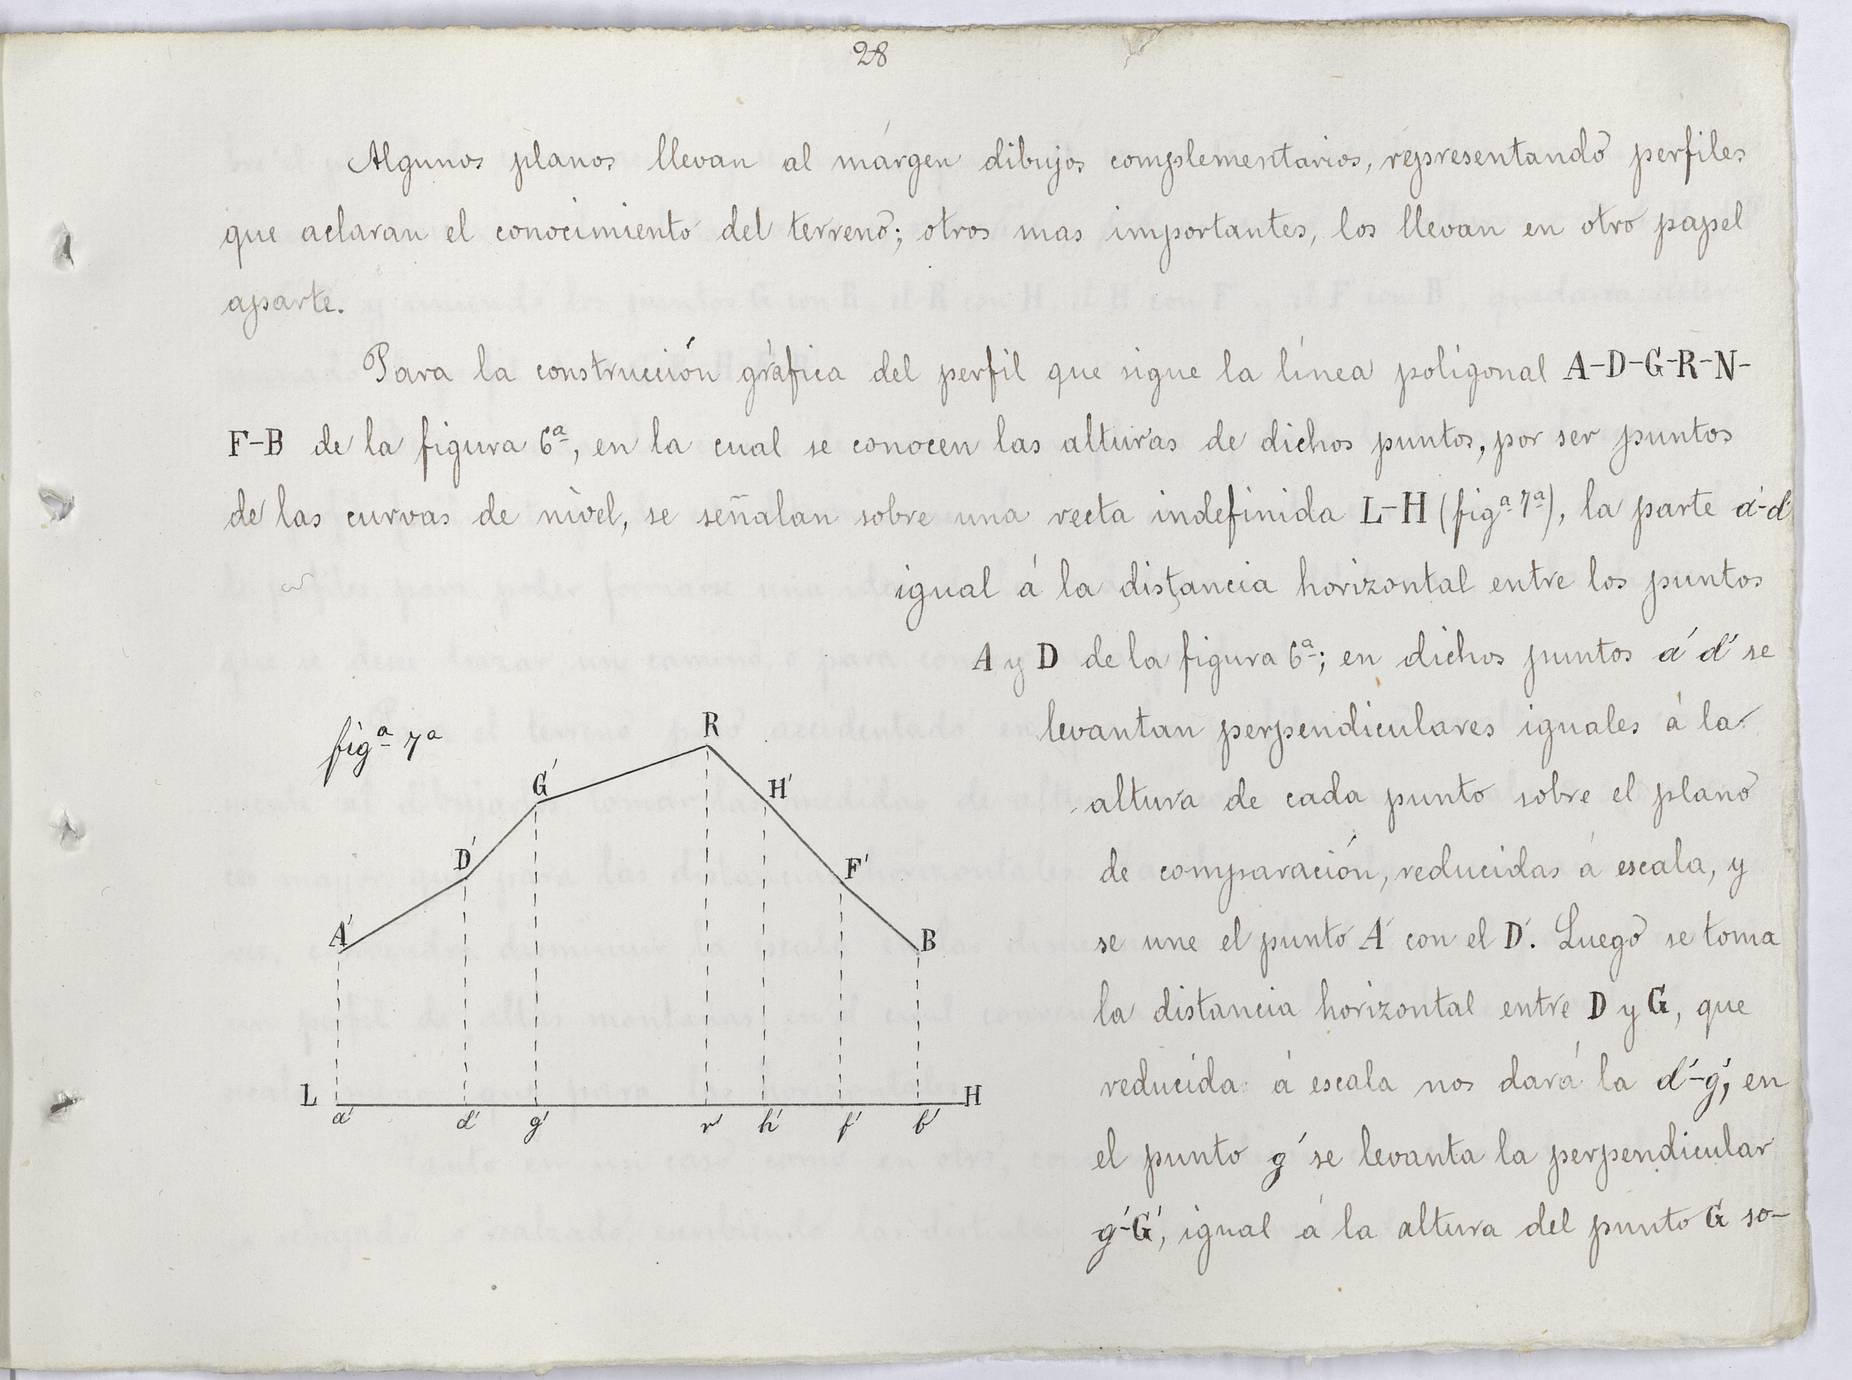 28
Algunos planos llevan al márgen dibujos complementarios, representando perfiles
que aclaran el conocimiento del terreno; otros mas importantes, los llevan en otro papel
aparte.
Para la construcción gráfica del perfil que sigue la línea poligonal A-D-G-R-N-
F-B de la figura 6ª, en la cual se conocen las alturas de dichos puntos, por ser puntos
de las curvas de nivel, se señalan sobre una recta indefinida L-H (figª 7ª), la parte a'-d'
igual á la distancia horizontal entre los puntos
A y D de la figura 6ª; en dichos puntos a' d' se
levantan perpendiculares iguales á la
altura de cada punto sobre el plano
de comparación, reducidas á escala, y
se une el punto A' con el D'. Luego se toma
la distancia horizontal entre D y G, que
reducida á escala nos dará la d'-g', en
el punto g' se levanta la perpendicular
g'-G', igual á la altura del punto G so-
figª 7ª
R
G'
H'
D'
F'
A'
B
L
H
a'
d'
g'
r'
h'
f'
b'